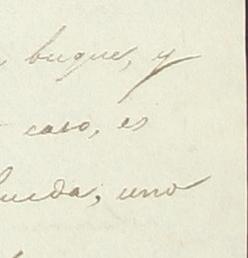 buque, y
caso, es
ueda, uno